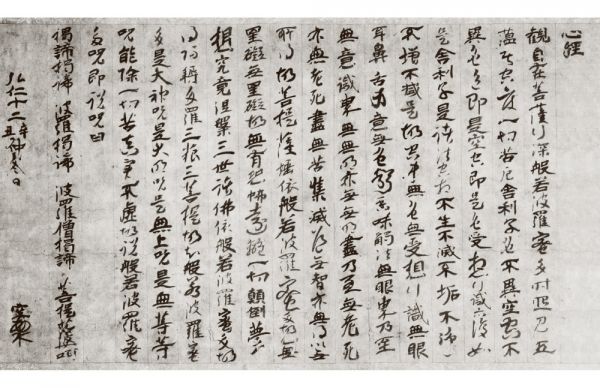 心經
觀自在菩薩行深般若波羅蜜多時照見五
蘊皆空度一切苦厄舍利子色不異空空不
異色色即是空空即是色受想行識亦復如
是舍利子是諸法空相不生不滅不垢不淨
不增不減是故空中無色無受想行識無眼
耳鼻舌身意無色聲香味觸法無眼界乃至
無意識界無無明亦無無明盡乃至無老死
亦無老死盡無苦集滅道無智亦無得以無
所得故菩提薩埵依般若波羅蜜多故心無
罣礙無罣礙故無有恐怖遠離一切顛倒夢
想究竟涅槃三世諸佛依般若波羅蜜多故
得阿耨多羅三藐三菩提故知般若波羅蜜
多是大神呪是大明呪是無上呪是無等等
呪能除一切苦真實不虛故說般若波羅蜜
多呪即說呪曰
揭諦揭諦 波羅揭諦 波羅僧揭諦 菩提
弘仁十二年